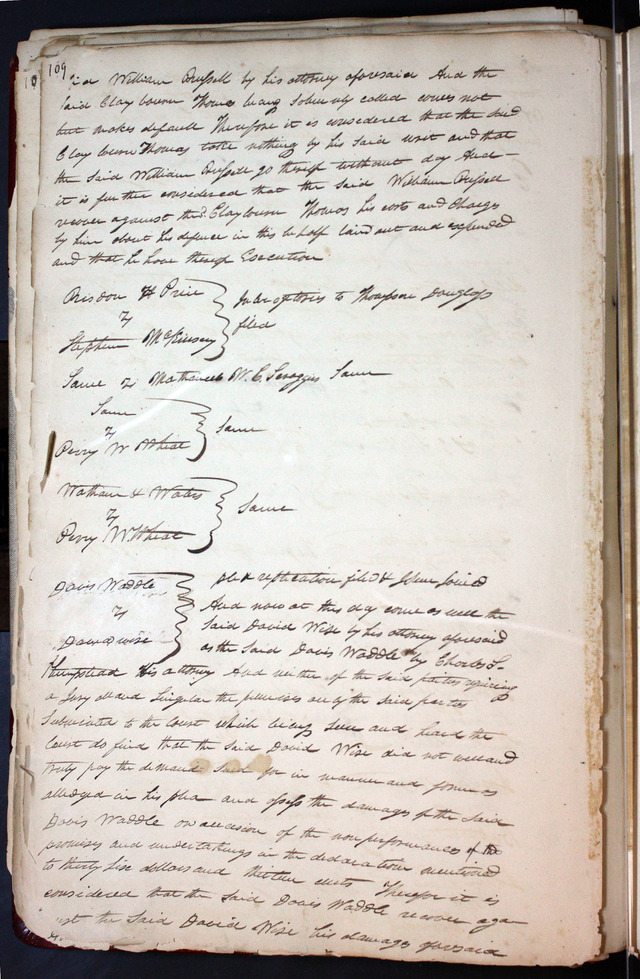 109
William Russell by his attorney aforesaid And the
said Claybourn Thomas being Solemnly called comes not
but makes default Therefore it is considered that the said
Claybourn Thomas take nothing by his said writ and that
the Said William Russell go thereof without day And
it is further considered that the said William Russell
recover against the sd. Claybourn Thomas his costs and charges
by him about his defence in this behalf laid out and expended
and that he have thereof Execution
Risdon H Price
vs
Stephen McKinsey
to Thompson Douglass
filed
Same vs Nathaniel W. C. Scroggins Same
Same
vs
Perry W Wheat
Same
Natham & Waters
vs
Perry W. Wheat
Same
Davis Waddle
vs
David Wise
plea replication filed & Issue joined
And now at this day come as well the
Said David Wise by his attorney aforesaid
as the Said Davis Waddle by Charles S.
Hempstead His attorney And neither of the said parties requiring
a Jury all and Singular the premises are by the said parties
Submitted to the Court which being Seen and heard the
Court do find that the Said David Wise did not well and
truly pay the demand Said for in manner and form as
alledged in his plea and assess the damages of the Said
Davis Waddle on occasion of the non performances of the
promises and undertakings in the declaration mentioned
to thirty Six dollars and thirteen cents Therefore it is
considered that the Said Davis Waddle recover aga
inst the Said David Wise his damages aforesaid